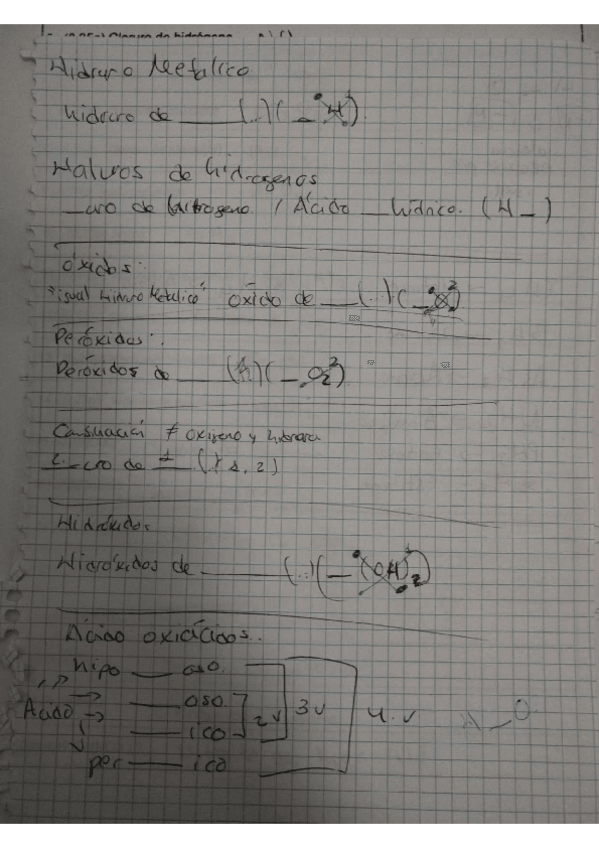 Hidruro Metalico
hidruro de ____ (..) ( _ H )
Haluros de hidrogenos
__uro de hidrogeno / Ácido __ hídrico. ( H _ )
óxidos:
"igual hidruro Metalico" óxido de ___ (..) ( _ O 2 )
Peróxidos:
Peróxidos de ____ ( ) ( _ O2 2 )
≠ oxigeno y
__uro de __ ( 1, 2 )
Hidróxidos
Hidróxidos de ______ (..) ( _ (OH) 2 )
Ácido oxiácidos..
hipo __ oso
Ácido → ___ oso 2v 3v 4.v H _ O
→ ___ ico
per ___ ico